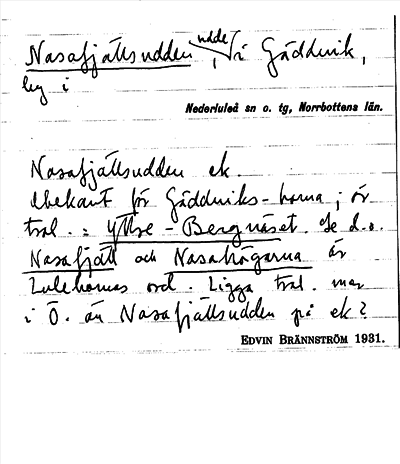 Nasafjällsudden, udde i Gäddvik,
lvg i
Nederluleå sn o. tg, Norrbottens län.
Nasafjällsudden ek.
Obekant för Gäddviks-borna; är
trol. = Yttre-Bergnäset. Se d.o.
Nasafjäll och Nasahögarna är
Lulebornas ord. Ligga trol. mer
i Ö. än Nasafjällsudden på ek?
EDVIN BRÄNNSTRÖM 1931.